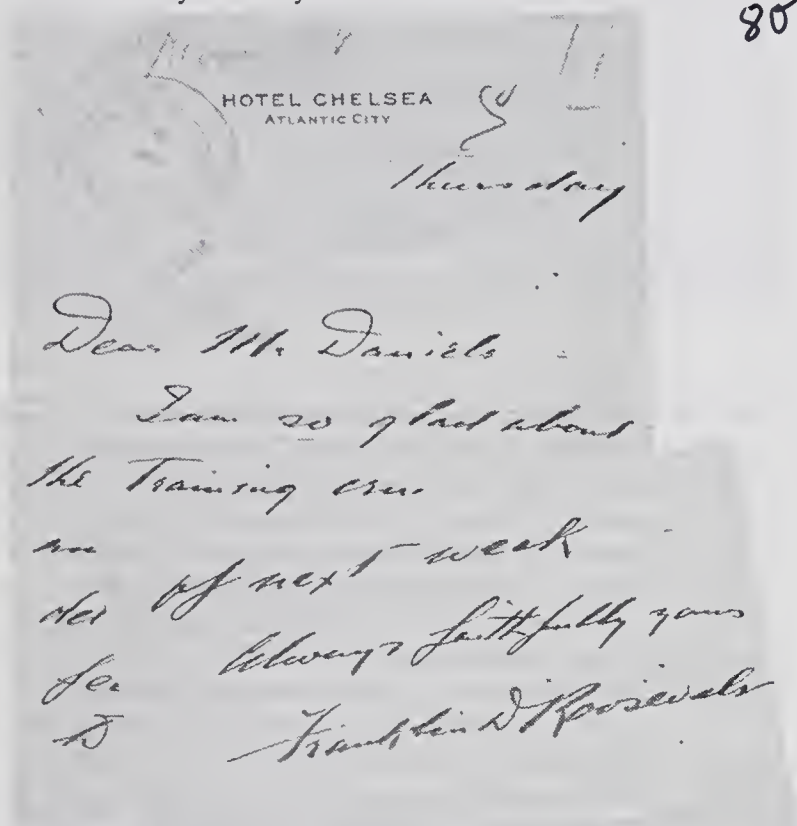 80
HOTEL CHELSEA
ATLANTIC CITY
Thursday
Dear Mr. Daniels
I am so glad about
the Training
of next week
Always faithfully yours
Franklin D Roosevelt